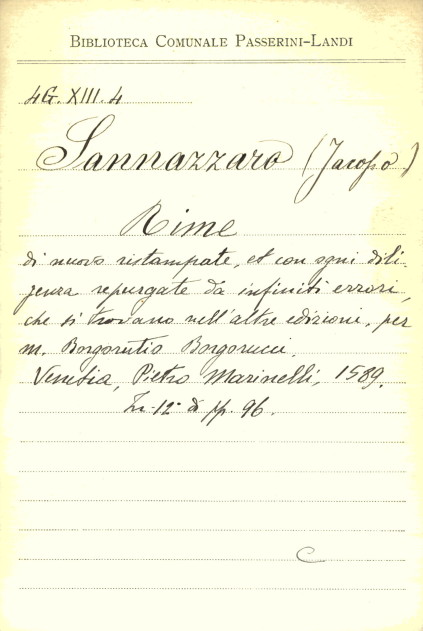 BIBLIOTECA COMUNALE PASSERINI-LANDI
4G.XIII.4
Sannazzaro (Jacopo)
Rime
di nuovo ristampate, et con ogni dili-
genza repurgate da infiniti errori,
che si trovano nell'altre edizioni, per
m. Borgorutio Borgorucci.
Venetia, Pietro Marinelli, 1589.
In-12° di pp. 96.
C